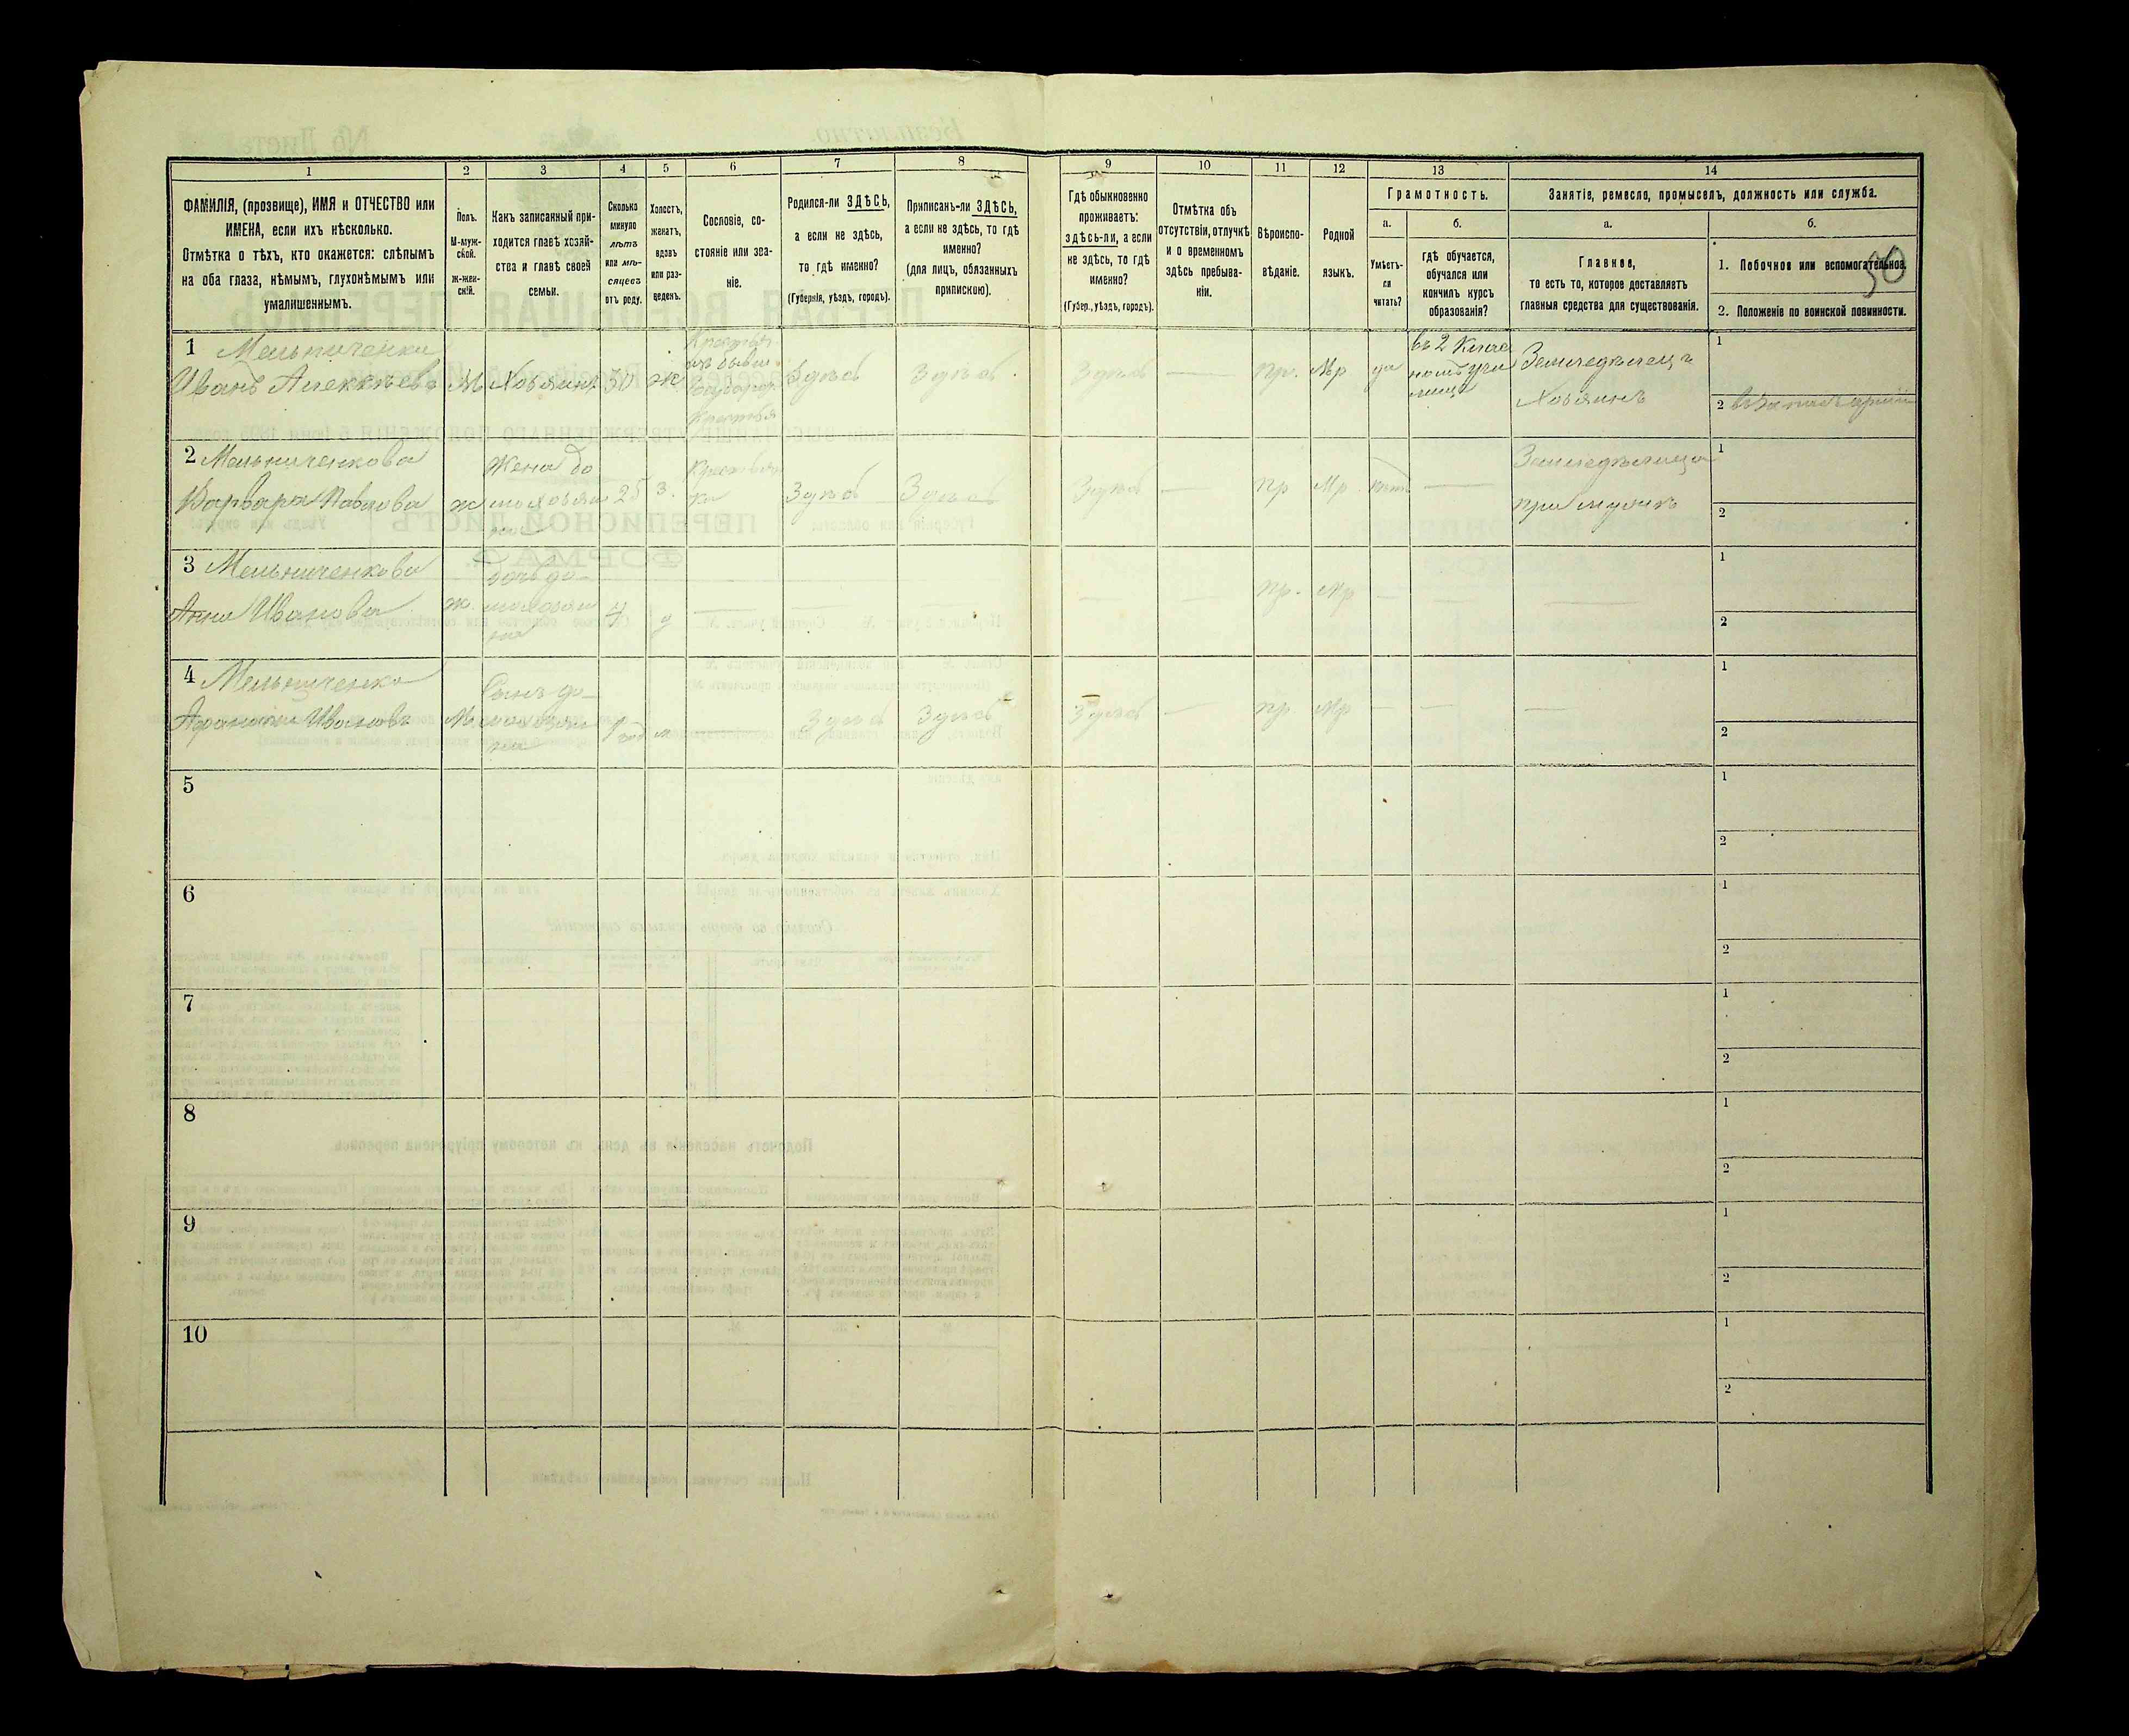 1 2 3 4 5 6 7 8 9 10 11 12 13 14
ФАМИЛІЯ, (прозвище), ИМЯ и ОТЧЕСТВО или
ИМЕНА, если ихъ нѣсколько.
Отмѣтка о тѣхъ, кто окажется: слѣпымъ
на оба глаза, нѣмымъ, глухонѣмымъ или
умалишеннымъ.
Полъ.
М-муж-
ской.
ж-жен-
скій.
Какъ записанный при-
ходится главѣ хозяй-
ства и главѣ своей
семьи.
Сколько
минуло
лѣтъ
или мѣ-
сяцевъ
отъ роду.
Холостъ,
женатъ,
вдовъ
или раз-
веденъ.
Сословіе, со-
стояніе или зва-
ніе.
Родился-ли ЗДѢСЬ,
а если не здѣсь,
то гдѣ именно?
(Губернія, уѣздъ, городъ).
Приписанъ-ли ЗДѢСЬ,
а если не здѣсь, то гдѣ
именно?
(для лицъ, обязанныхъ
припискою).
Гдѣ обыкновенно
проживаетъ:
здѣсь-ли, а если
не здѣсь, то гдѣ
именно?
(Губер., уѣздъ, городъ).
Отмѣтка объ
отсутствіи, отлучкѣ
и о временномъ
здѣсь пребыва-
ніи.
Вѣроиспо-
вѣданіе.
Родной
языкъ.
Грамотность.
а.
Умѣетъ-
ли
читать?
б.
гдѣ обучается,
обучался или
кончилъ курсъ
образованія?
Занятіе, ремесло, промыселъ, должность или служба.
а.
Главное,
то есть то, которое доставляетъ
главныя средства для существованія.
б.
1. Побочное или вспомогательное.
50
2. Положеніе по воинской повинности.
1 Мельниченко
Иванъ Алексѣевъ М Хозяинъ 30 ж Здѣсь Здѣсь Здѣсь — пр. Мр да
въ 2
Земледѣлецъ
Хозяинъ
1
2
2 Мельниченкова
Варвара Павлова ж
Жена до
мохозяи
на
25 з.
Крестьян
ка
Здѣсь Здѣсь Здѣсь — пр Мр нѣтъ —
Земледѣлица
при мужѣ
1
2
3 Мельниченкова
Анна Иванова ж.
дочь до-
мохозяи
на
4 д — — — — пр. Мр — — —
1
2
4 Мельниченко
Иванов М
Сынъ до-
мохозяи
на
1 год — Здѣсь Здѣсь Здѣсь — пр. Мр — — —
1
2
5
1
2
6
1
2
7
1
2
8
1
2
9
1
2
10
1
2